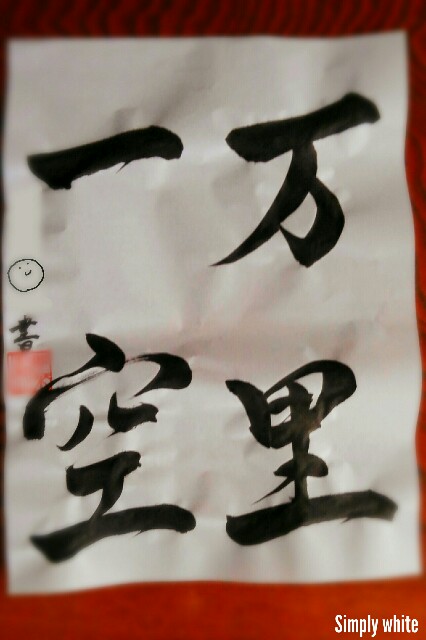 万里
一空
書
Simply white